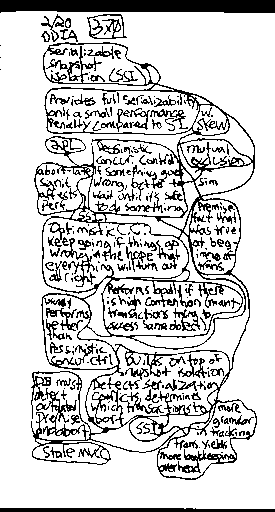 2/20
DDIA
Serializable
snapshot
isolation (SSI)
Provides full serializability
only a small performance
penalty compared to SI
w.
skew
2PL
Pessimistic
concur. control
if something goes
wrong, better to
wait until it's safe
to do something
mutual
exclusion
sim
abort rate
affects
perf
SSI
Premise
fact that
was true
at beg-
trans.
Optimistic C.C.
keep going if things go
wrong in the hope that
everything will turn out
all right
Performs badly if there
is high contention (many
transactions trying to
access same object)
performs
better
than
pessimistic
concur. ctrl
Builds on top of
snapshot isolation
Detects serialization
conflicts, determines
which transactions to
abort
DB must
detect
outdated
premise
and abort
SSI
more
granular
tracking
trans. yields
more bookkeeping
overhead
Stale MVCC